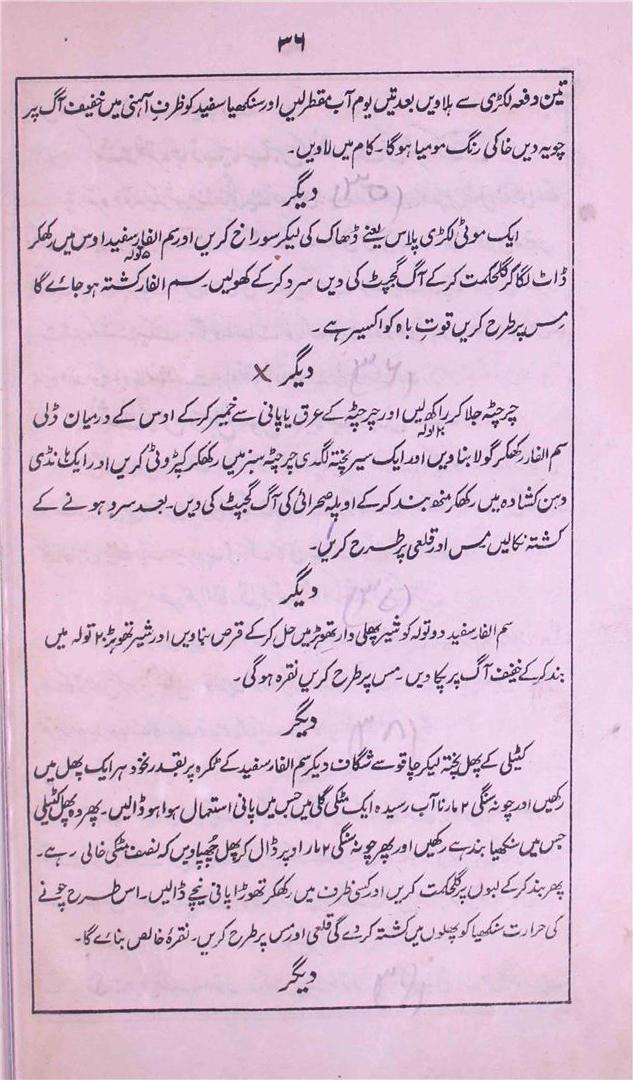 ۳۶
تین دفعہ لکڑی سے ہلاویں بعد تین یوم آب مقطر لیں اور سنکھیا سفید کو ظرف آہنی میں خفیف آگ پر
چویہ دیں خاکی رنگ مومیا ہوگا۔ کام میں لاویں۔
دیگر
ایک موٹی لکڑی پلاس یعنے ڈھاک کی لیکر سوراخ کریں اور سم الفار سفید ۵ تولہ اوس میں رکھکر
ڈاٹ لگا کر گلحکمت کر کے آگ گجپٹ کی دیں سرد کر کے کھولیں۔ سم الفار کشتہ ہو جائے گا
مِس پر طرح کریں قوتِ باہ کو اکسیر ہے۔
دیگر ×
چرچٹہ جلا کر راکھ لیں اور چرچٹہ کے عرق یا پانی سے خمیر کر کے اوس کے درمیان ڈلی
سم الفار ۲ تولہ رکھکر گولا بناویں اور ایک سیر پختہ لگدی چرچٹہ سبز میں رکھکر کپڑوٹی کریں اور ایک ہانڈی
دہن کشادہ میں رکھکر منھ بند کر کے اوپلہ صحرائی کی آگ گجپٹ کی دیں۔ بعد سرد ہونے کے
کشتہ نکالیں مس اور قلعی پر طرح کریں۔
دیگر
سم الفار سفید دو تولہ کو شیر پھلی دار تھوہڑ میں حل کر کے قرص بناویں اور شیر تھوہڑ ۲۰ تولہ میں
بند کر کے خفیف آگ پر پکا دیں۔ مس پر طرح کریں نقرہ ہوگی۔
دیگر
کٹیلی کے پھل پختہ لیکر چاقو سے شگاف دیکر سم الفار سفید کے ٹکڑہ بقدر نخود ہر ایک پھل میں
رکھیں اور چونہ سنگی ۲ مار نا آب رسیدہ ایک مٹکی گلی میں جس میں پانی استعمال ہوا ہو ڈالیں۔ پھر وہ پھل کٹیلی
جس میں سنکھیا بند ہے رکھیں اور پھر چونہ سنگی ۲ مار اوپر ڈال کر پھل چُھپا دیں کہ نصف مٹکی خالی رہے۔
پھر بند کر کے لبوں پر گلحکمت کریں اور کسی ظرف میں رکھکر تھوڑا پانی نیچے ڈالیں۔ اس طرح چونے
کی حرارت سنکھیا کو پھلوں میں کشتہ کر دے گی قلعی اور مس پر طرح کریں۔ نقرۂ خالص بنائے گا۔
دیگر